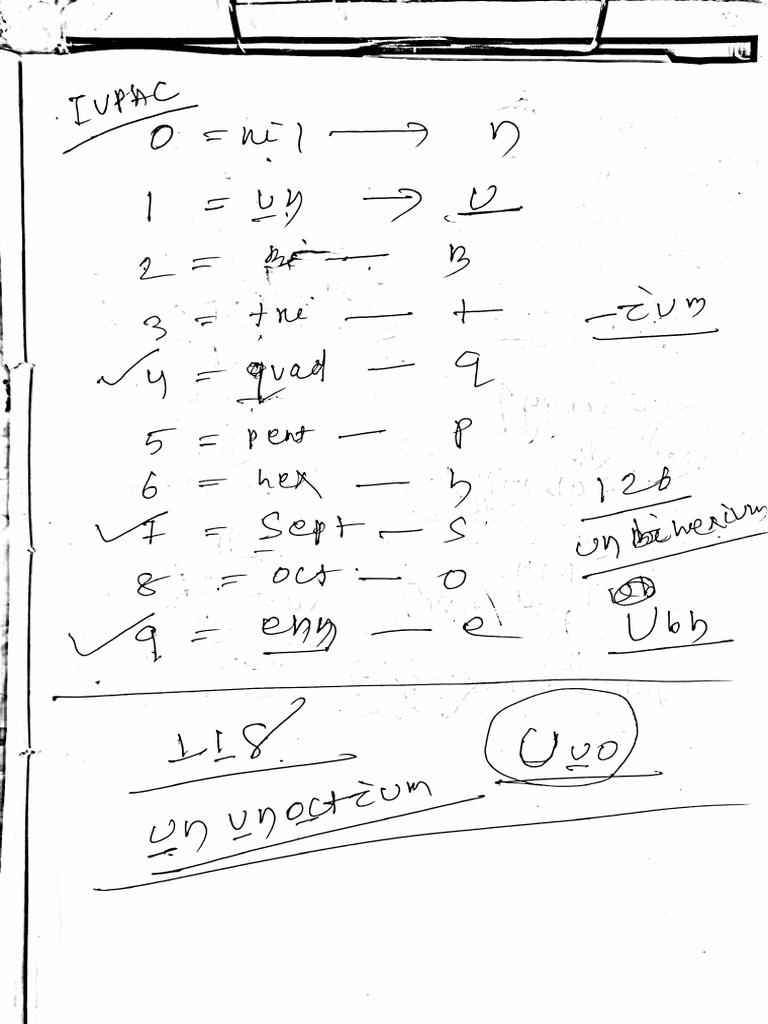 IUPAC
0 = nil → n
1 = un → U
2 = Bi — B
3 = tri — t
- ium
✓ 4 = quad — q
5 = pent — p
6 = hex — h
126
✓ 7 = Sept — S
un bihexium
8 = oct — o
✓ 9 = enn — e
Ubh
118
Uuo
un unoctium